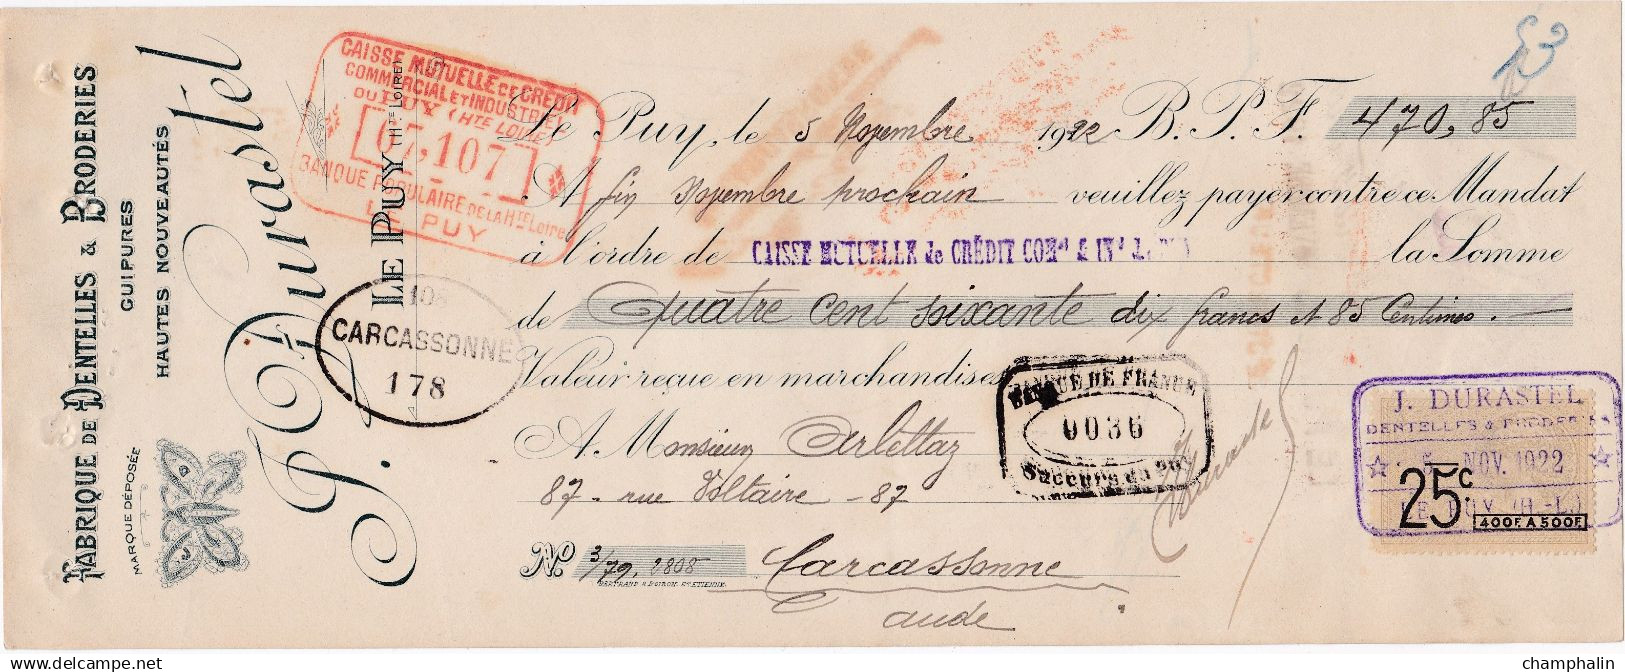 FABRIQUE DE DENTELLES & BRODERIES
GUIPURES
HAUTES NOUVEAUTÉS
MARQUE DÉPOSÉE
J D
J. Durastel
LE PUY (HTE LOIRE)
CAISSE MUTUELLE DE CRÉDIT
COMMERCIAL ET INDUSTRIEL
DU PUY (HTE LOIRE)
67,107
BANQUE POPULAIRE DE LA HTE Loire
LE PUY
Le Puy, le 5 Novembre 1922 B. P. F. 470,85
A fin Novembre prochain veuillez payer contre ce Mandat
à l'ordre de CAISSE MUTUELLE de CRÉDIT COMal & INd la Somme
de Quatre cent soixante dix francs et 85 Centimes.
Valeur reçue en marchandises
108
CARCASSONNE
178
BANQUE DE FRANCE
0036
Succurs. du Puy
A Monsieur Arlettaz
87 - rue Voltaire - 87
Carcassonne
Aude
No. 3/79. 2808
BERTRAND & POIRON ST ETIENNE
J Durastel
J. DURASTEL
DENTELLES & BRODERIES
5 NOV. 1922
LE PUY (H.-L.)
25c.
400F. A 500F.
champhalin
www.delcampe.net